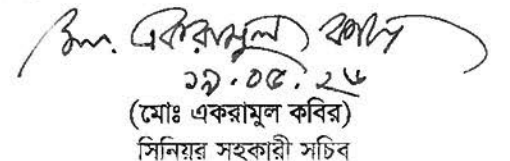 মোঃ একরামুল কবির
১৯.০৫.২৬
(মোঃ একরামুল কবির)
সিনিয়র সহকারী সচিব